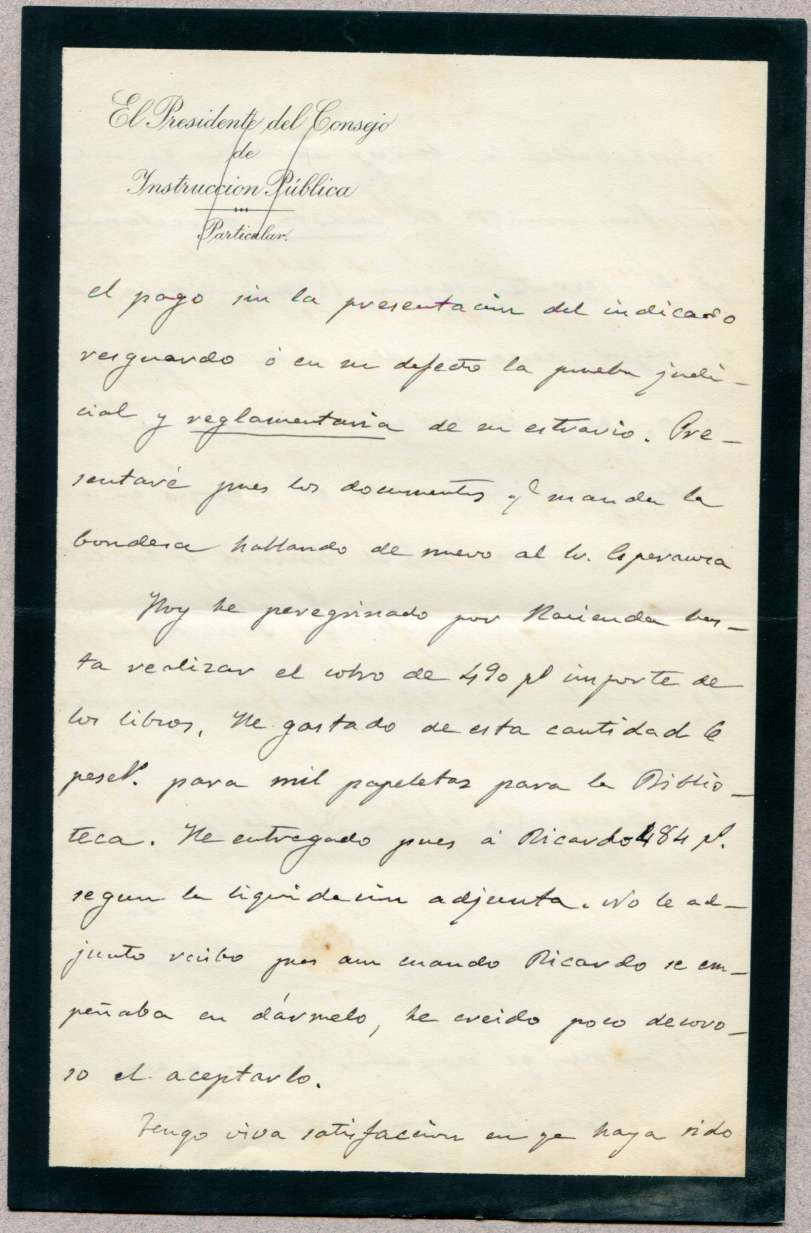 El Presidente del Consejo
de
Instruccion Pública
Particular.
el pago sin la presentacion del indicado
resguardo ó en su defecto la prueba judi-
cial y reglamentaria de su estravio. Pre-
sentaré pues los documentos q.e manda la
hablando de nuevo al Sr. Esperanza
Hoy he peregrinado por Hacienda has-
ta realizar el cobro de 490 pt importe de
los libros. He gastado de esta cantidad 6
peset. para mil papeletas para la Biblio-
teca. He entregado pues á Ricardo 484 pt.
segun la liquidacion adjunta. No le ad-
junto recibo pues aun cuando Ricardo se em-
peñaba en dármelo, he creido poco decoro-
so el aceptarlo.
Tengo viva satisfaccion en qe haya sido